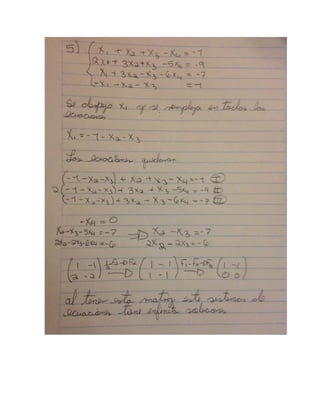 5) { x₁ + x₂ + x₃ - x₄ = -1
2x₁ + 3x₂ + x₃ - 5x₄ = -9
x₁ + 3x₂ - x₃ - 6x₄ = -7
-x₁ - x₂ - x₃ = 1
Se despeja x₁ y se remplaza en todas las
ecuaciones
x₁ = -1 - x₂ - x₃
Las ecuaciones quedaran
(-1-x₂-x₃) + x₂ + x₃ - x₄ = -1 I
2(-1-x₂-x₃) + 3x₂ + x₃ - 5x₄ = -9 II
(-1-x₂-x₃) + 3x₂ - x₃ - 6x₄ = -7 III
-x₄ = 0
x₂-x₃-5x₄ = -7 → x₂ - x₃ = -7
2x₂-2x₃-6x₄ = -6 2x₂ - 2x₃ = -6
(1 -1) (1 -1) F₁-F₂→F₂ (1 -1)
(2 -2) → (1 -1) → (0 0)
al tener esta matriz este sistema de
ecuaciones tiene infinita soluciones